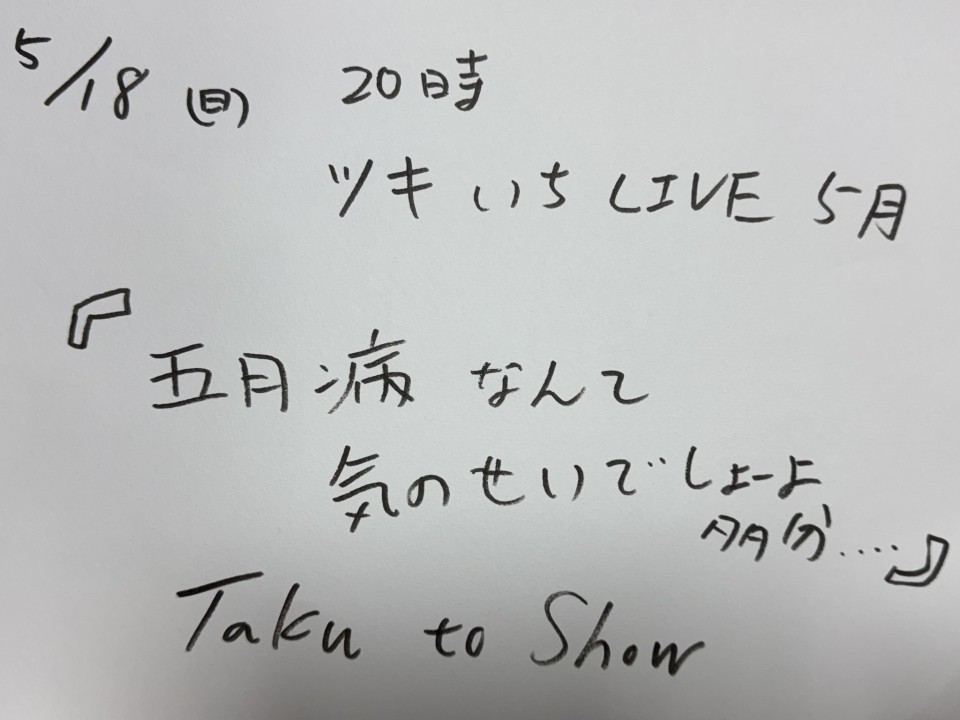 5/18(日) 20時
ツキいちLIVE 5月
『五月病なんて
気のせいでしょーよ
多分....』
Taku to Show